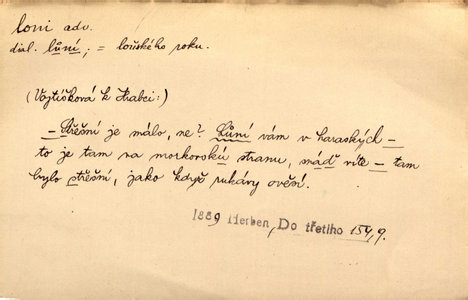 loni adv.
dial. lůní; = loňského roku.
(Vojtíšková k Hrabci:)
– Střešní je málo, ne? Lůní vám v haraských –
to je tam na morkovskú stranu, snáď víte – tam
bylo střešní, jako když rukávy ověsí.
1889 Herben, Do třetího 154, 9.